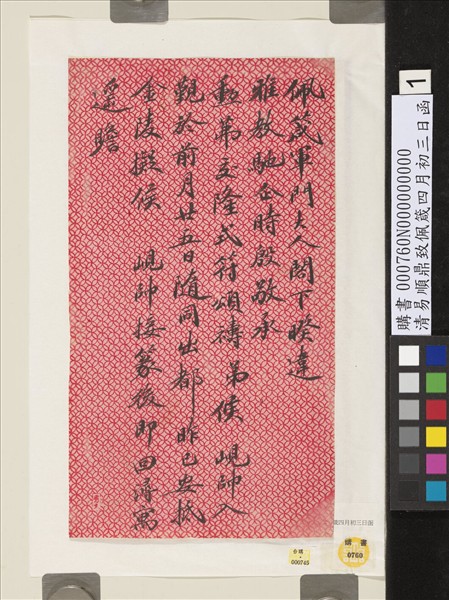 佩箴軍門大人閣下暌違
雅教馳企時殷敬承
隆式符頌禱弟 峴帥入
覲於前月廿五日隨同出都昨已安抵
金陵擬候 峴帥接篆後即回寓
遙瞻
1
購書 000760N000000000
清易順鼎致佩箴四月初三日函
四月初三日函
購書
0760
000745